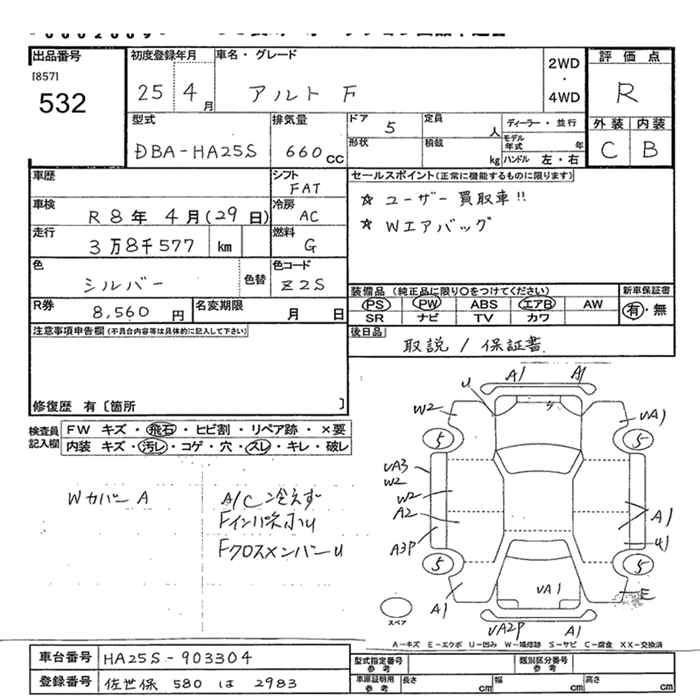 出品番号
[857]
532
初度登録年月
25 4月
車名・グレード
アルト F
2WD
・
4WD
評価点
R
外装 内装
C B
型式
DBA-HA25S
排気量
660 CC
ドア 5
形状
定員 人
積載 kg
ディーラー・並行
モデル年式 年
ハンドル 左・右
車歴
シフト
FAT
車検
R8年4月(29日)
冷房
AC
走行
3万8千577 km
燃料
G
色
シルバー
色替
色コード
Z2S
R券
8,560円
名変期限
月 日
セールスポイント(正常に機能するものに限ります)
☆ ユーザー買取車!!
☆ Wエアバッグ
装備品(純正品に限り○をつけてください)
PS PW ABS エアB AW
SR ナビ TV カワ
新車保証書
有・無
後日品
取説 / 保証書
注意事項申告欄(不具合内容等は具体的に記入して下さい)
修復歴 有〔箇所 〕
検査員
記入欄
FW キズ・飛石・ヒビ割・リペア跡・×要
内装 キズ・汚レ・コゲ・穴・スレ・キレ・破レ
WカバーA
A/C冷えず
FインパネホU
FクロスメンバーU
A1 A1
U
W2
UA1
5 5
UA3
W2
W2
A2
A3P
A1
U1
5 5
UA1
A1
E
UA2P A1
スペア
A-キズ E-エクボ U-凹み W-補修跡 S-サビ C-腐食 XX-交換済
車台番号
HA25S-903304
登録番号
佐世保 580 は 2983
型式指定番号
参考
類別区分番号
参考
車庫証明用
参考
長さ cm
幅 cm
高さ cm